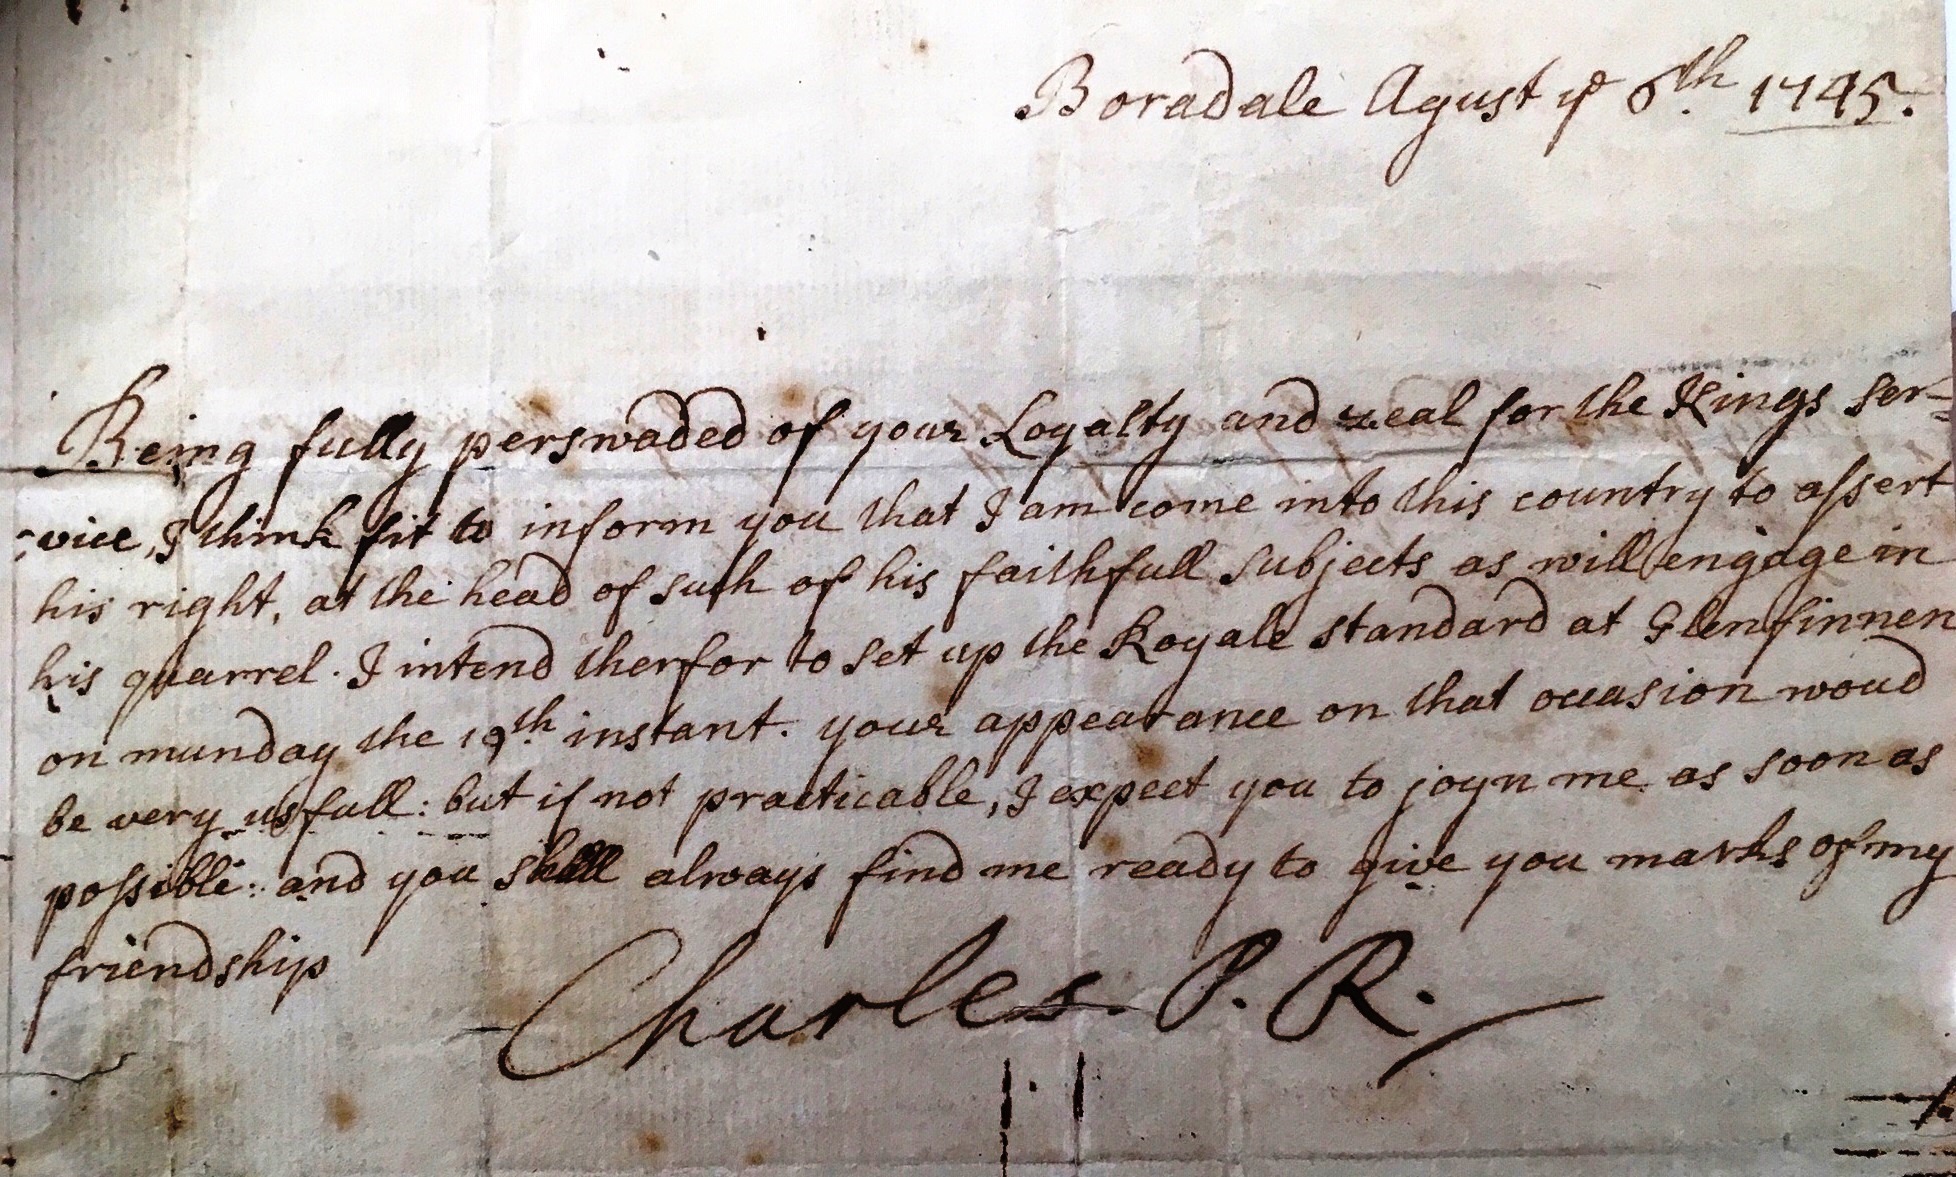 Boradale Agust yᵉ 6th. 1745.
Being fully perswaded of your Loyalty and zeal for the Kings ser=
=vice, I think fit to inform you that I am come into this country to assert
his right, at the head of such of his faithfull subjects as will engage in
his quarrel. I intend therfor to set up the Royale standard at Glenfinnen
on munday the 19th. instant. your appearance on that occasion woud
be very usfull: but if not practicable, I expect you to joyn me as soon as
possible: and you shall always find me ready to give you marks of my
friendship
Charles. P. R.